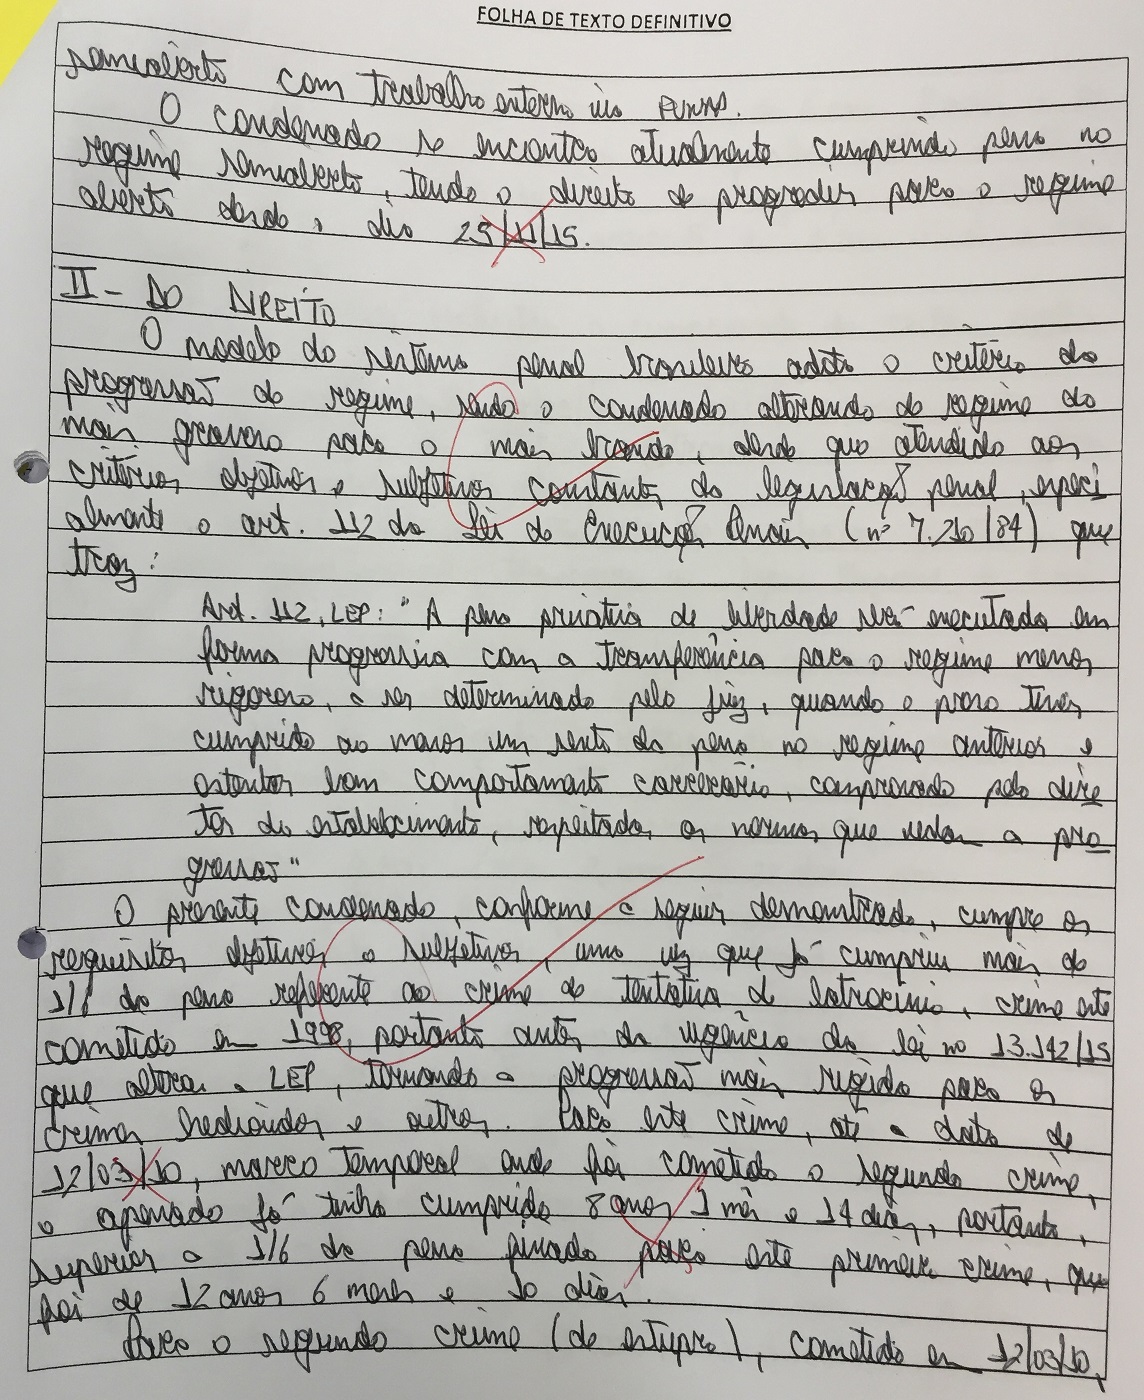 FOLHA DE TEXTO DEFINITIVO
semiaberto com trabalho externo na
O condenado se encontra atualmente cumprindo pena no
regime semiaberto, tendo o direito de progredir para o regime
aberto desde o dia 25/11/15.
II - DO DIREITO
O modelo do sistema penal brasileiro adota o critério da
progressão de regime, sendo o condenado alterando do regime do
mais gravoso para o mais brando, desde que atendido aos
critérios objetivos e subjetivos constantes da legislação penal, especi
almente o art. 112 da Lei de Execução Penais (nº 7.210/84) que
traz:
Art. 112, LEP: "A pena privativa de liberdade será executada em
forma progressiva com a transferência para o regime menos
rigoroso, a ser determinado pelo juiz, quando o preso tiver
cumprido ao menos um sexto da pena no regime anterior e
ostentar bom comportamento carcerário, comprovado pelo dire
tor do estabelecimento, respeitadas as normas que vedam a pro
gressão"
O presente condenado, conforme a seguir demonstrado, cumpre os
requisitos objetivos e subjetivos, uma vez que já cumpriu mais de
1/6 da pena referente ao crime de tentativa de latrocínio, crime este
cometido em 1998, portanto antes da vigência da lei no 13.142/15
que altera a LEP, tornando a progressão mais rígida para os
crimes hediondos e outros. Para este crime, até a data de
12/03/10, marco temporal onde foi cometido o segundo crime,
o apenado já tinha cumprido 8 anos 1 mês e 14 dias, portanto,
superior a 1/6 da pena fixada para este primeiro crime, que
foi de 12 anos 6 meses e 10 dias.
Para o segundo crime (de estupro), cometido em 12/03/10,